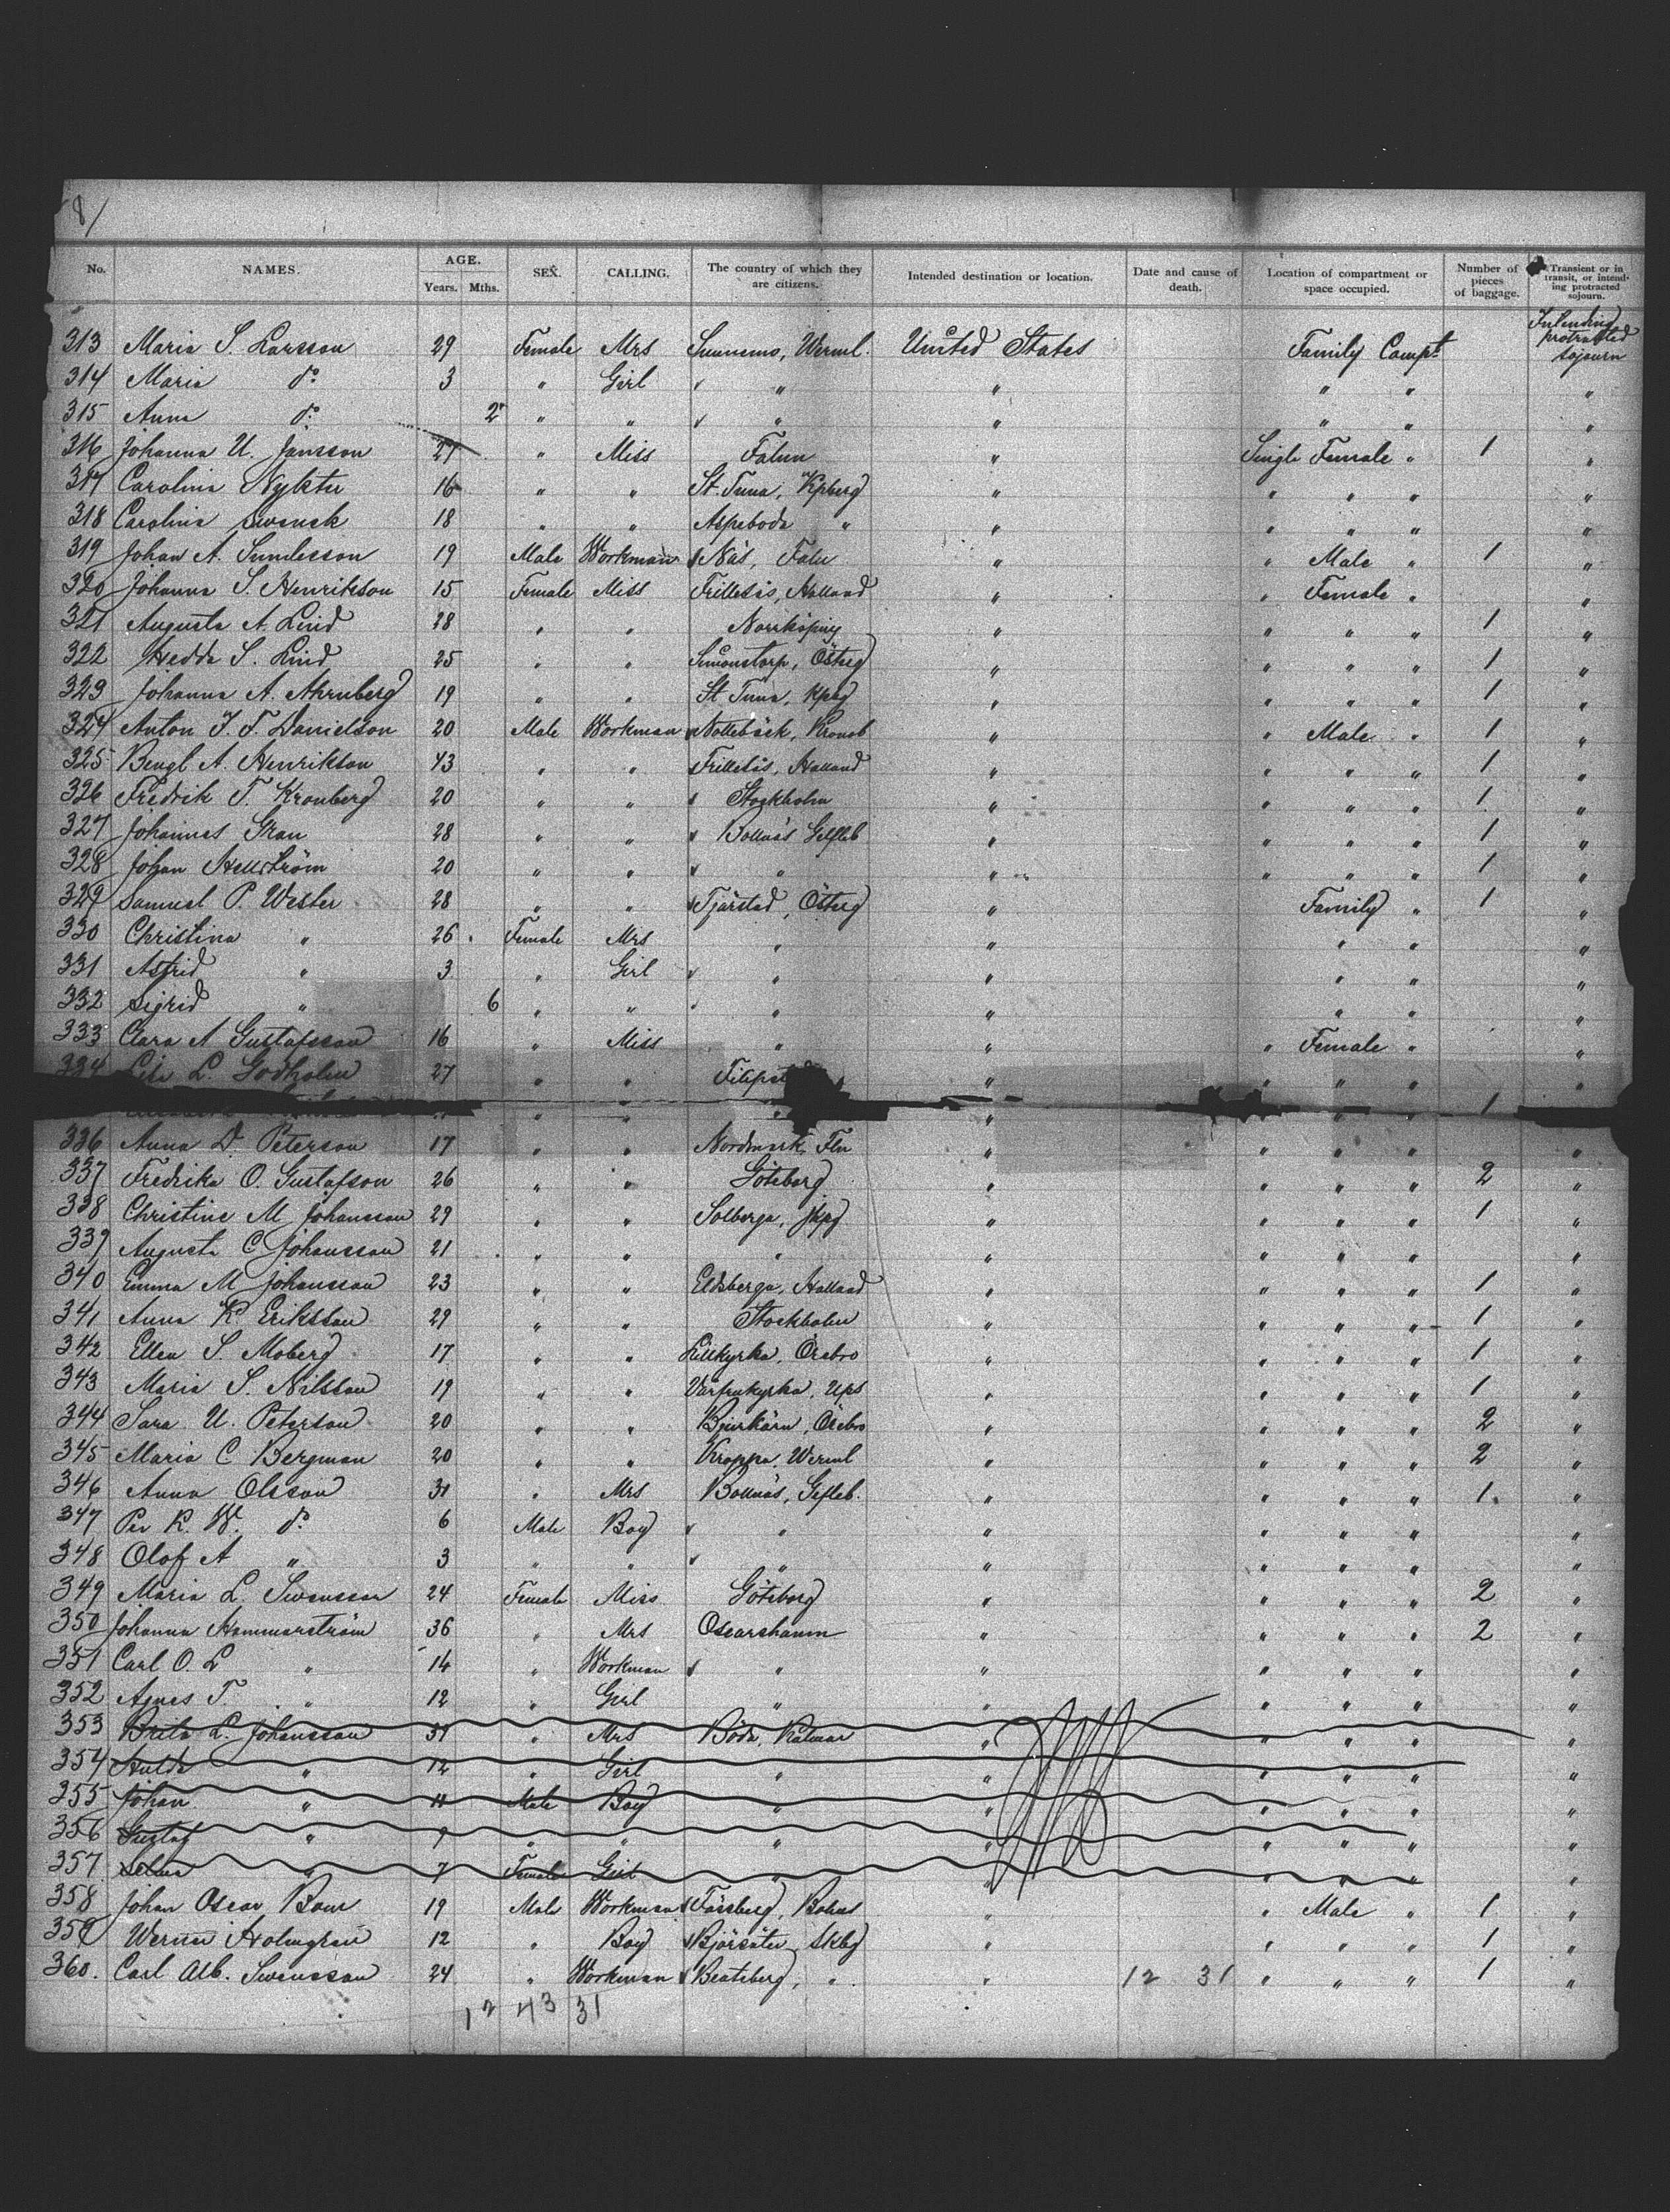 8/
No. NAMES. AGE. Years. Mths. SEX. CALLING. The country of which they are citizens. Intended destination or location. Date and cause of death. Location of compartment or space occupied. Number of pieces of baggage. Transient or in transit, or intending protracted sojourn.
313 Maria S. Larsson 29 Female Mrs Sunnemo, Werml. United States Family Compt. Intending protracted sojourn
314 Maria do 3 " Girl " " " " "
315 Anna do 2 " " " " " " "
316 Johanna U. Jansson 27 " Miss Falun " Single Female " 1 "
317 Carolina 16 " " St. Tuna, Kpberg " " " " "
318 Carolina Swensk 18 " " Aspeboda " " " " " "
319 Johan A. 19 Male Workman Nås, Falu " " Male " 1 "
320 Johanna S. Henrikson 15 Female Miss Frillesås, Halland " " Female " "
321 Augusta A. Lind 28 " " Norrköping " " " " 1 "
322 Hedda S. Lind 25 " " Simonstorp, Österg " " " " 1 "
323 Johanna A. Ahrnberg 19 " " St Tuna, Kpbg " " " " 1 "
324 Anton J. F. Danielson 20 Male Workman Nottebäck, Kronob " " Male " 1 "
325 Bengt A. Henrikson 43 " " Frillesås, Halland " " " " 1 "
326 Fredrik T. Kronberg 20 " " Stockholm " " " " 1 "
327 Johannes Gran 28 " " Bollnäs Gefleb " " " " 1 "
328 Johan Hellström 20 " " " " " " " 1 "
329 Samuel P. Wester 28 " " Tjärstad, Österg " Family " 1 "
330 Christina " 26 Female Mrs " " " " "
331 Astrid " 3 " Girl " " " " "
332 Sigrid " 6 " " " " " " "
333 Clara A Gustafsson 16 " Miss " " " Female " "
334 L. Godholm 27 " " " " " " "
" " " " " " 1 "
336 Anna D. Peterson 17 " " Nordmark, Fln " " " " "
337 Fredrika O. Gustafson 26 " " Göteborg " " " " 2 "
338 Christine M Johansson 29 " " Solberga, Jkpg " " " " 1 "
339 Augusta C Johansson 21 " " " " " " " "
340 Emma M Johansson 23 " " Eldsberga, Halland " " " " 1 "
341 Anna K Eriksson 29 " " Stockholm " " " " 1 "
342 Ellen S. Moberg 17 " " Lillkyrka, Örebro " " " " 1 "
343 Maria S. Nilsson 19 " " Vårfrukyrka, Ups " " " " 1 "
344 Sara U. Peterson 20 " " Bjurkärn, Örebro " " " " 2 "
345 Maria C Bergman 20 " " Kroppa, Werml " " " " 2 "
346 Anna Olsson 31 " Mrs Bollnäs, Gefleb. " " " " 1 "
347 Per K. W. do 6 Male Boy " " " " " "
348 Olof A " 3 " " " " " " " "
349 Maria L. Swensson 24 Female Miss Göteborg " " " " 2 "
350 Johanna Hammarström 36 " Mrs Oscarshamn " " " " 2 "
351 Carl O. L " 14 " Workman " " " " " "
352 Agnes T. " 12 " Girl " " " " " "
353 Brita L. Johansson 31 " Mrs Böda, Kalmar " " " " "
354 Hulda " 12 " Girl " " " " " "
355 Johan " 11 Male Boy " " " " " "
356 Gustaf " 9 " " " " " " " "
357 Selma " 7 Female Girl " " " " " "
358 Johan Oscar 19 Male Workman Bohus " " Male " 1 "
359 Werner Holmgren 12 " Boy Björsäter Skbg " " " " 1 "
360. Carl Alb. Swensson 24 " Workman Beateberg, " " 12 31 " " " 1 "
12 43 31